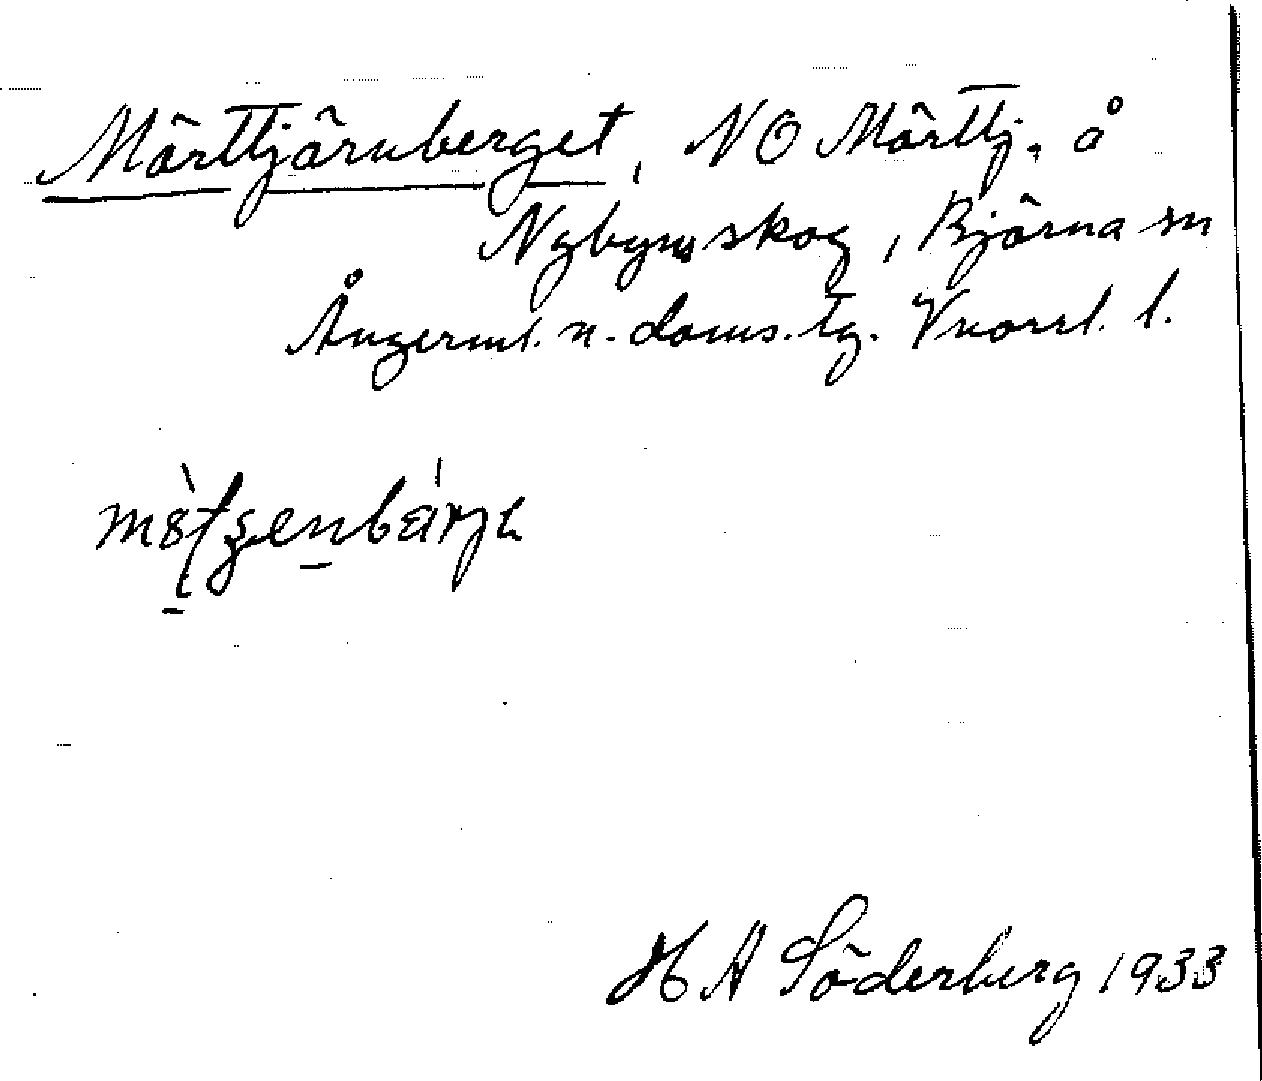 Mörttjärnberget, NO Mörttj. å
Nybyns skog, Björna sn
Ångerml. n. doms. tg. Vnorrl. l.
H A Söderberg 1933